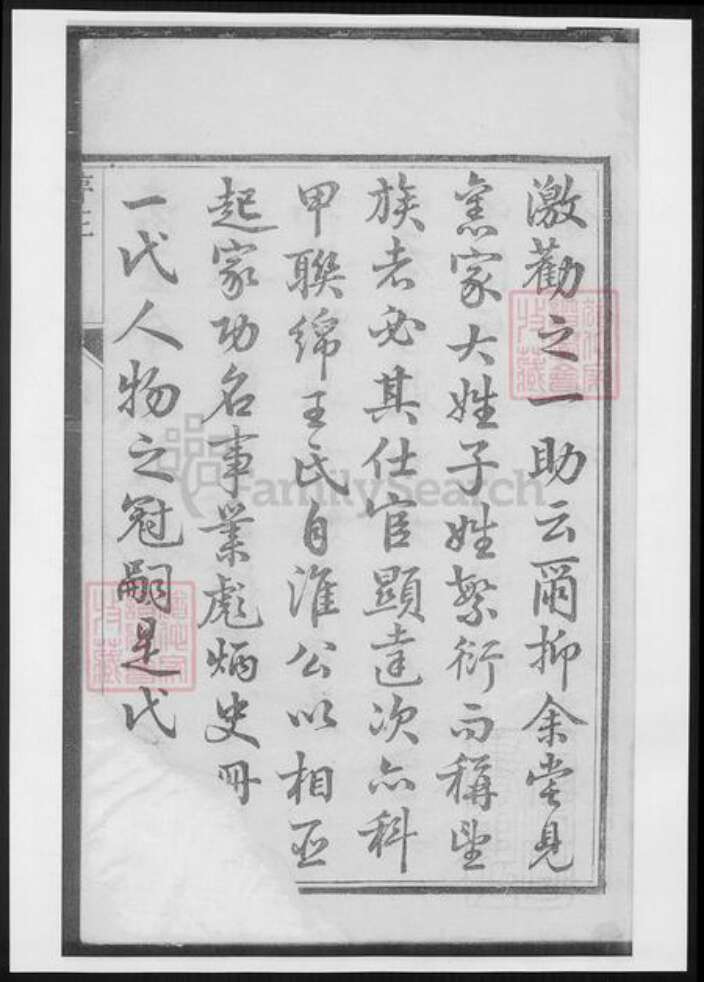 激勸之一助云爾抑余嘗見
家大姓子姓繁衍而稱望
族者必其仕宦顯達次亦科
甲聯綿王氏自淮公以相臣
起家功名事業彪炳史冊
一代人物之冠嗣是代
FamilySearch